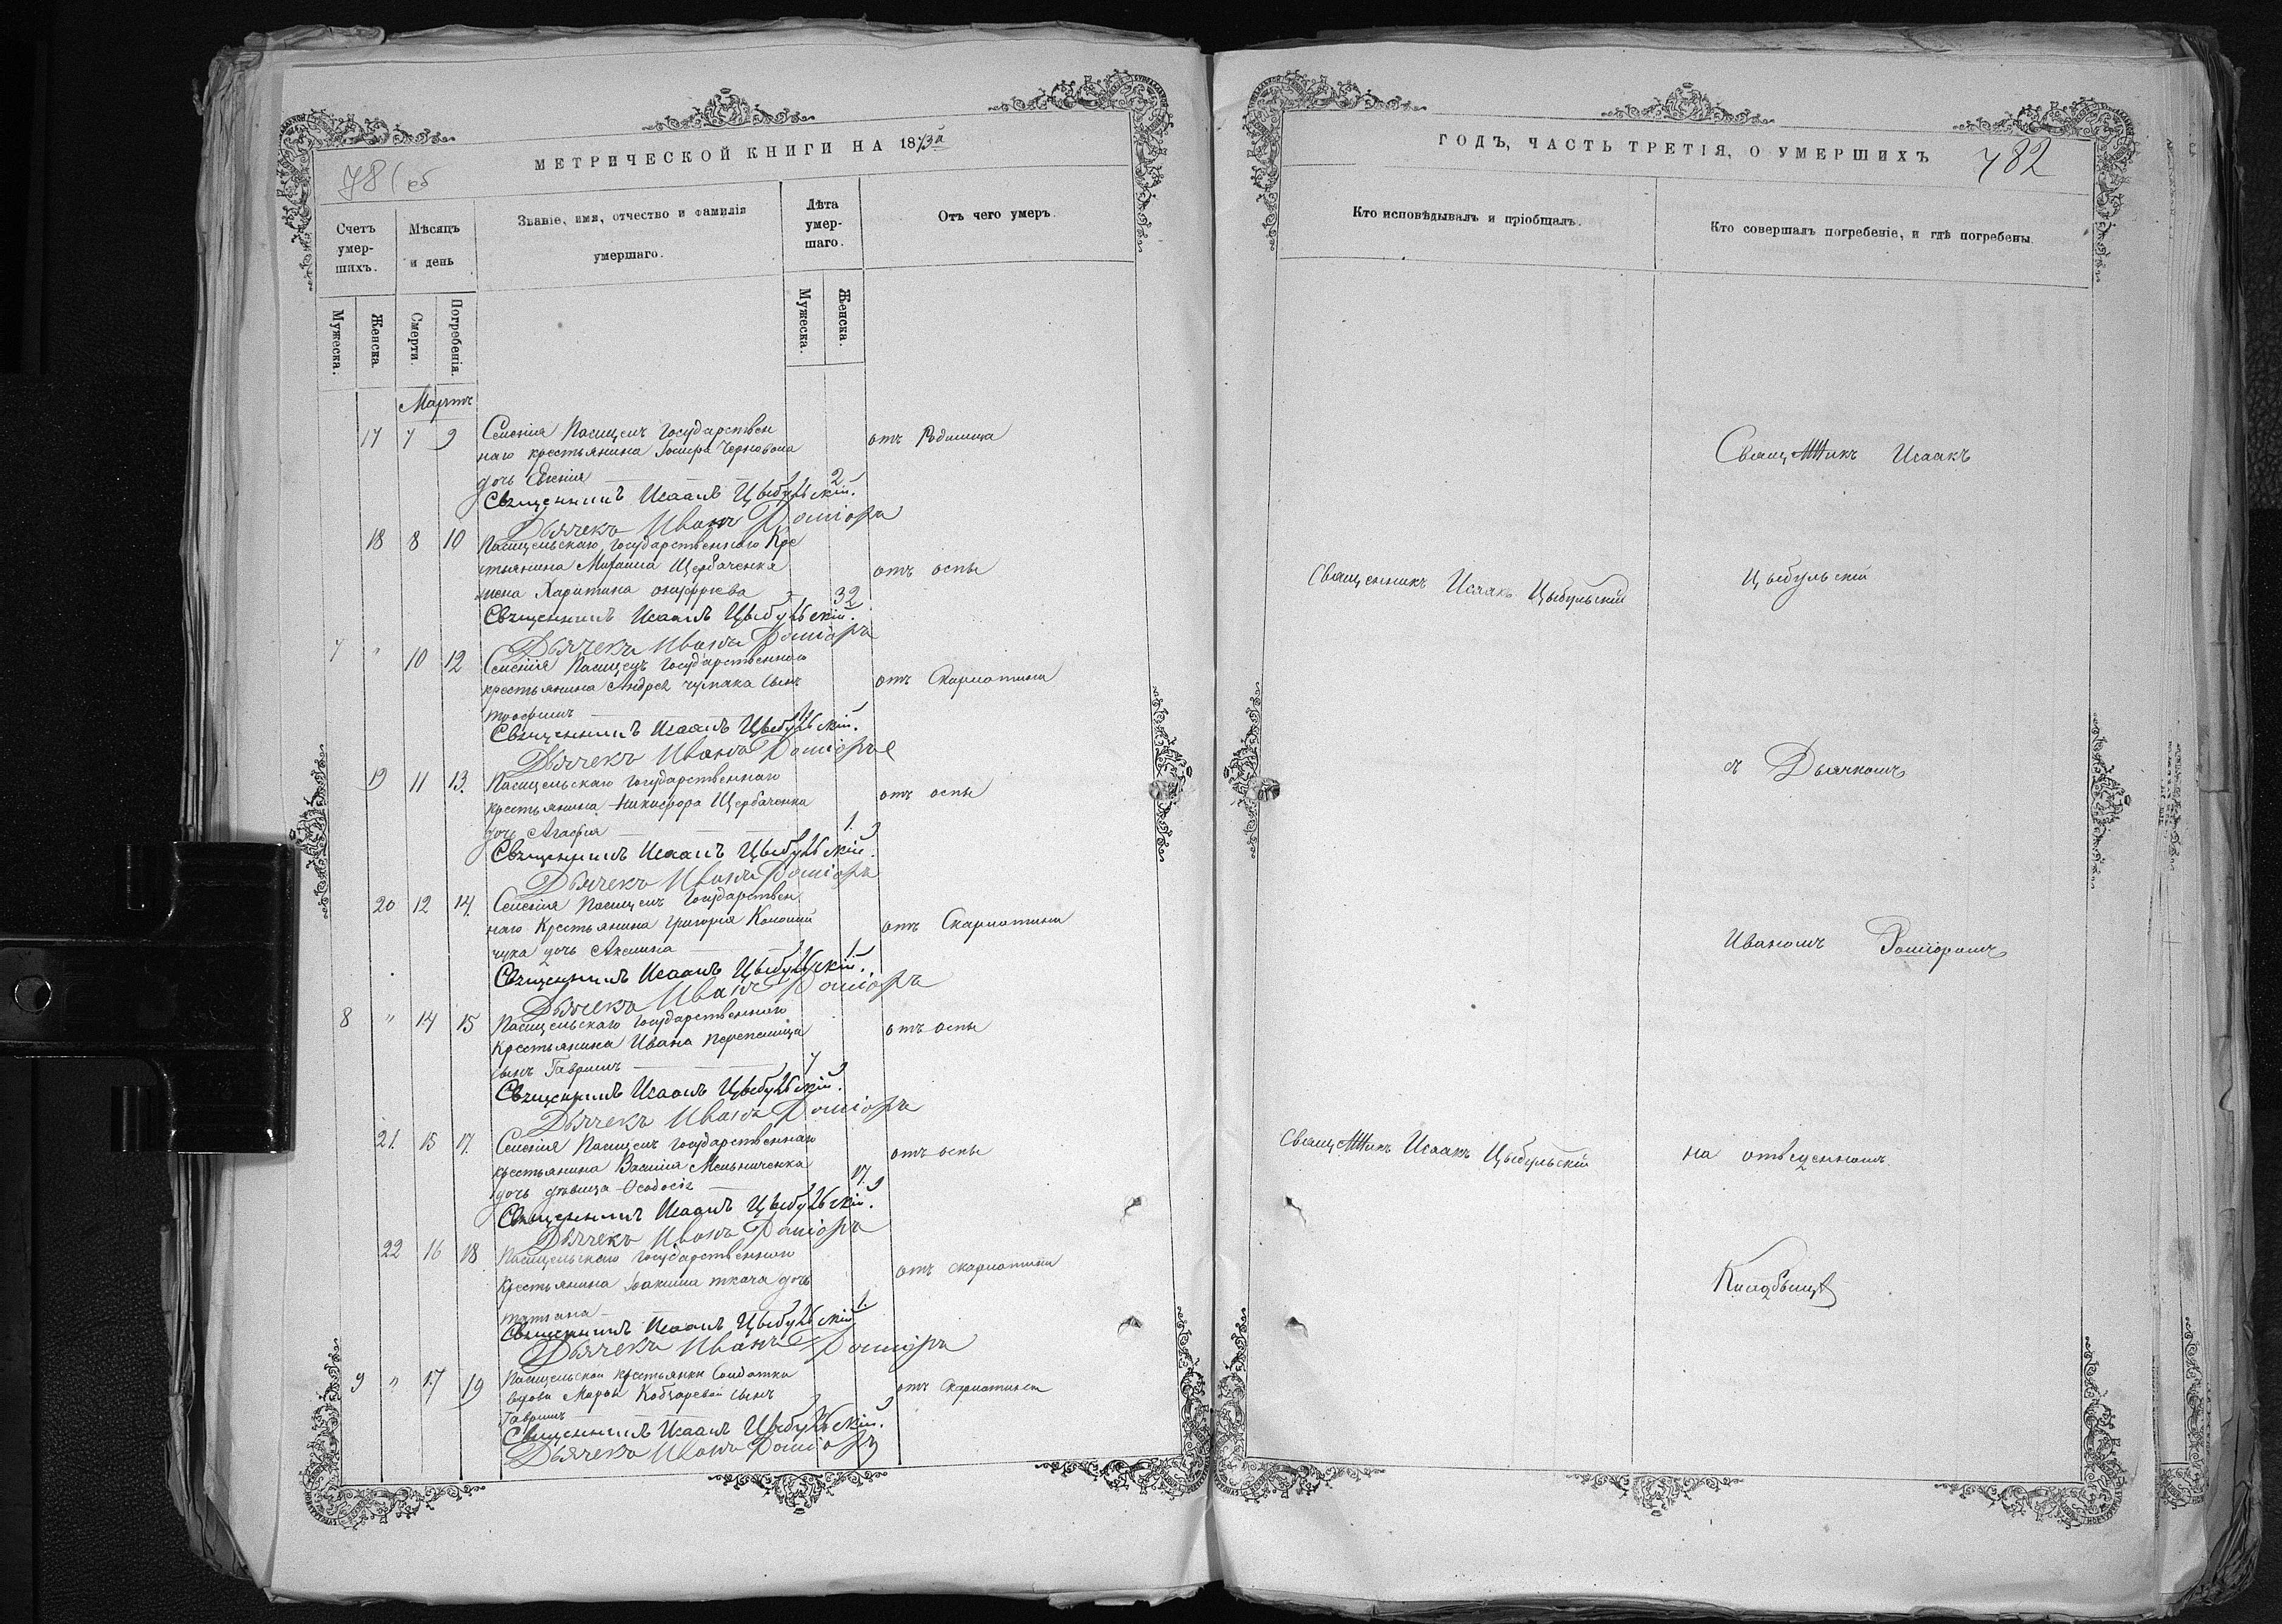 МЕТРИЧЕСКОЙ КНИГИ НА 1873й
781 об
Счетъ умер-шихъ.
Мѣсяцъ и день
Званіе, имя, отчество и фамилія умершаго.
Лѣта умер-шаго.
Отъ чего умеръ.
Мужеска.
Женска.
Смерти.
Погребенія.
Мужеска.
Женска.
Мартъ
17 7 9 Селенія Пасицелъ Государствен
наго крестьянина Іосифа Черновола
дочь Евгенія 2
отъ Родимца
Священникъ Исаакъ Цыбульскій.
Дьячекъ Иванъ
18 8 10 Пасицельскаго Государственнаго Кре
стьянина Михаила Щербаченка
жена Харитина онуфріева 32
отъ оспы
Священникъ Исаакъ Цыбульскій.
Дьячекъ Иванъ
7 " 10 12 Селенія Пасицелъ Государственнаго
крестьянина Андрея чумака сынъ
трофимъ 1
отъ Скарлатины
Священникъ Исаакъ Цыбульскій.
Дьячекъ Иванъ
19 11 13. Пасицельскаго Государственнаго
крестьянина Никифора Щербаченка
дочь Агафія 1.
отъ оспы
Священникъ Исаакъ Цыбульскій.
Дьячекъ Иванъ
20 12 14. Селенія Пасицелъ Государствен
наго Крестьянина григорія
чука дочь Акилина 1.
отъ Скарлатины
Священникъ Исаакъ Цыбульскій.
Дьячекъ Иванъ
8 " 14 15 Пасицельскаго Государственнаго
Крестьянина Ивана перепелица
сынъ Гавриилъ 7
отъ оспы
Священникъ Исаакъ Цыбульскій.
Дьячекъ Иванъ
21. 15 17. Селенія Пасицелъ Государственнаго
крестьянина Василія Мельниченка
дочь дѣвица Феодосія 17.
отъ оспы
Священникъ Исаакъ Цыбульскій.
Дьячекъ Иванъ
22 16 18 Пасицельскаго Государственнаго
Крестьянина Іоакима ткача дочь
татіана 1.
отъ скарлатины
Священникъ Исаакъ Цыбульскій
Дьячекъ Иванъ
9 " 17 19 Пасицельской крестьянки Солдатки
вдовы Марфы Кобзаревой сынъ
Гавриилъ
отъ Скарлатины
Священникъ Исаакъ Цыбульскій.
Дьячекъ Иванъ
ГОДЪ, ЧАСТЬ ТРЕТІЯ, О УМЕРШИХЪ
782
Кто исповѣдывалъ и пріобщалъ.
Кто совершалъ погребеніе, и гдѣ погребены.
Священникъ Исаакъ Цыбульскій
Священникъ Исаакъ Цыбульскій
Священникъ Исаакъ
Цыбульскій
съ Дьячкомъ
Иваномъ
на отведенномъ
Кладбищѣ